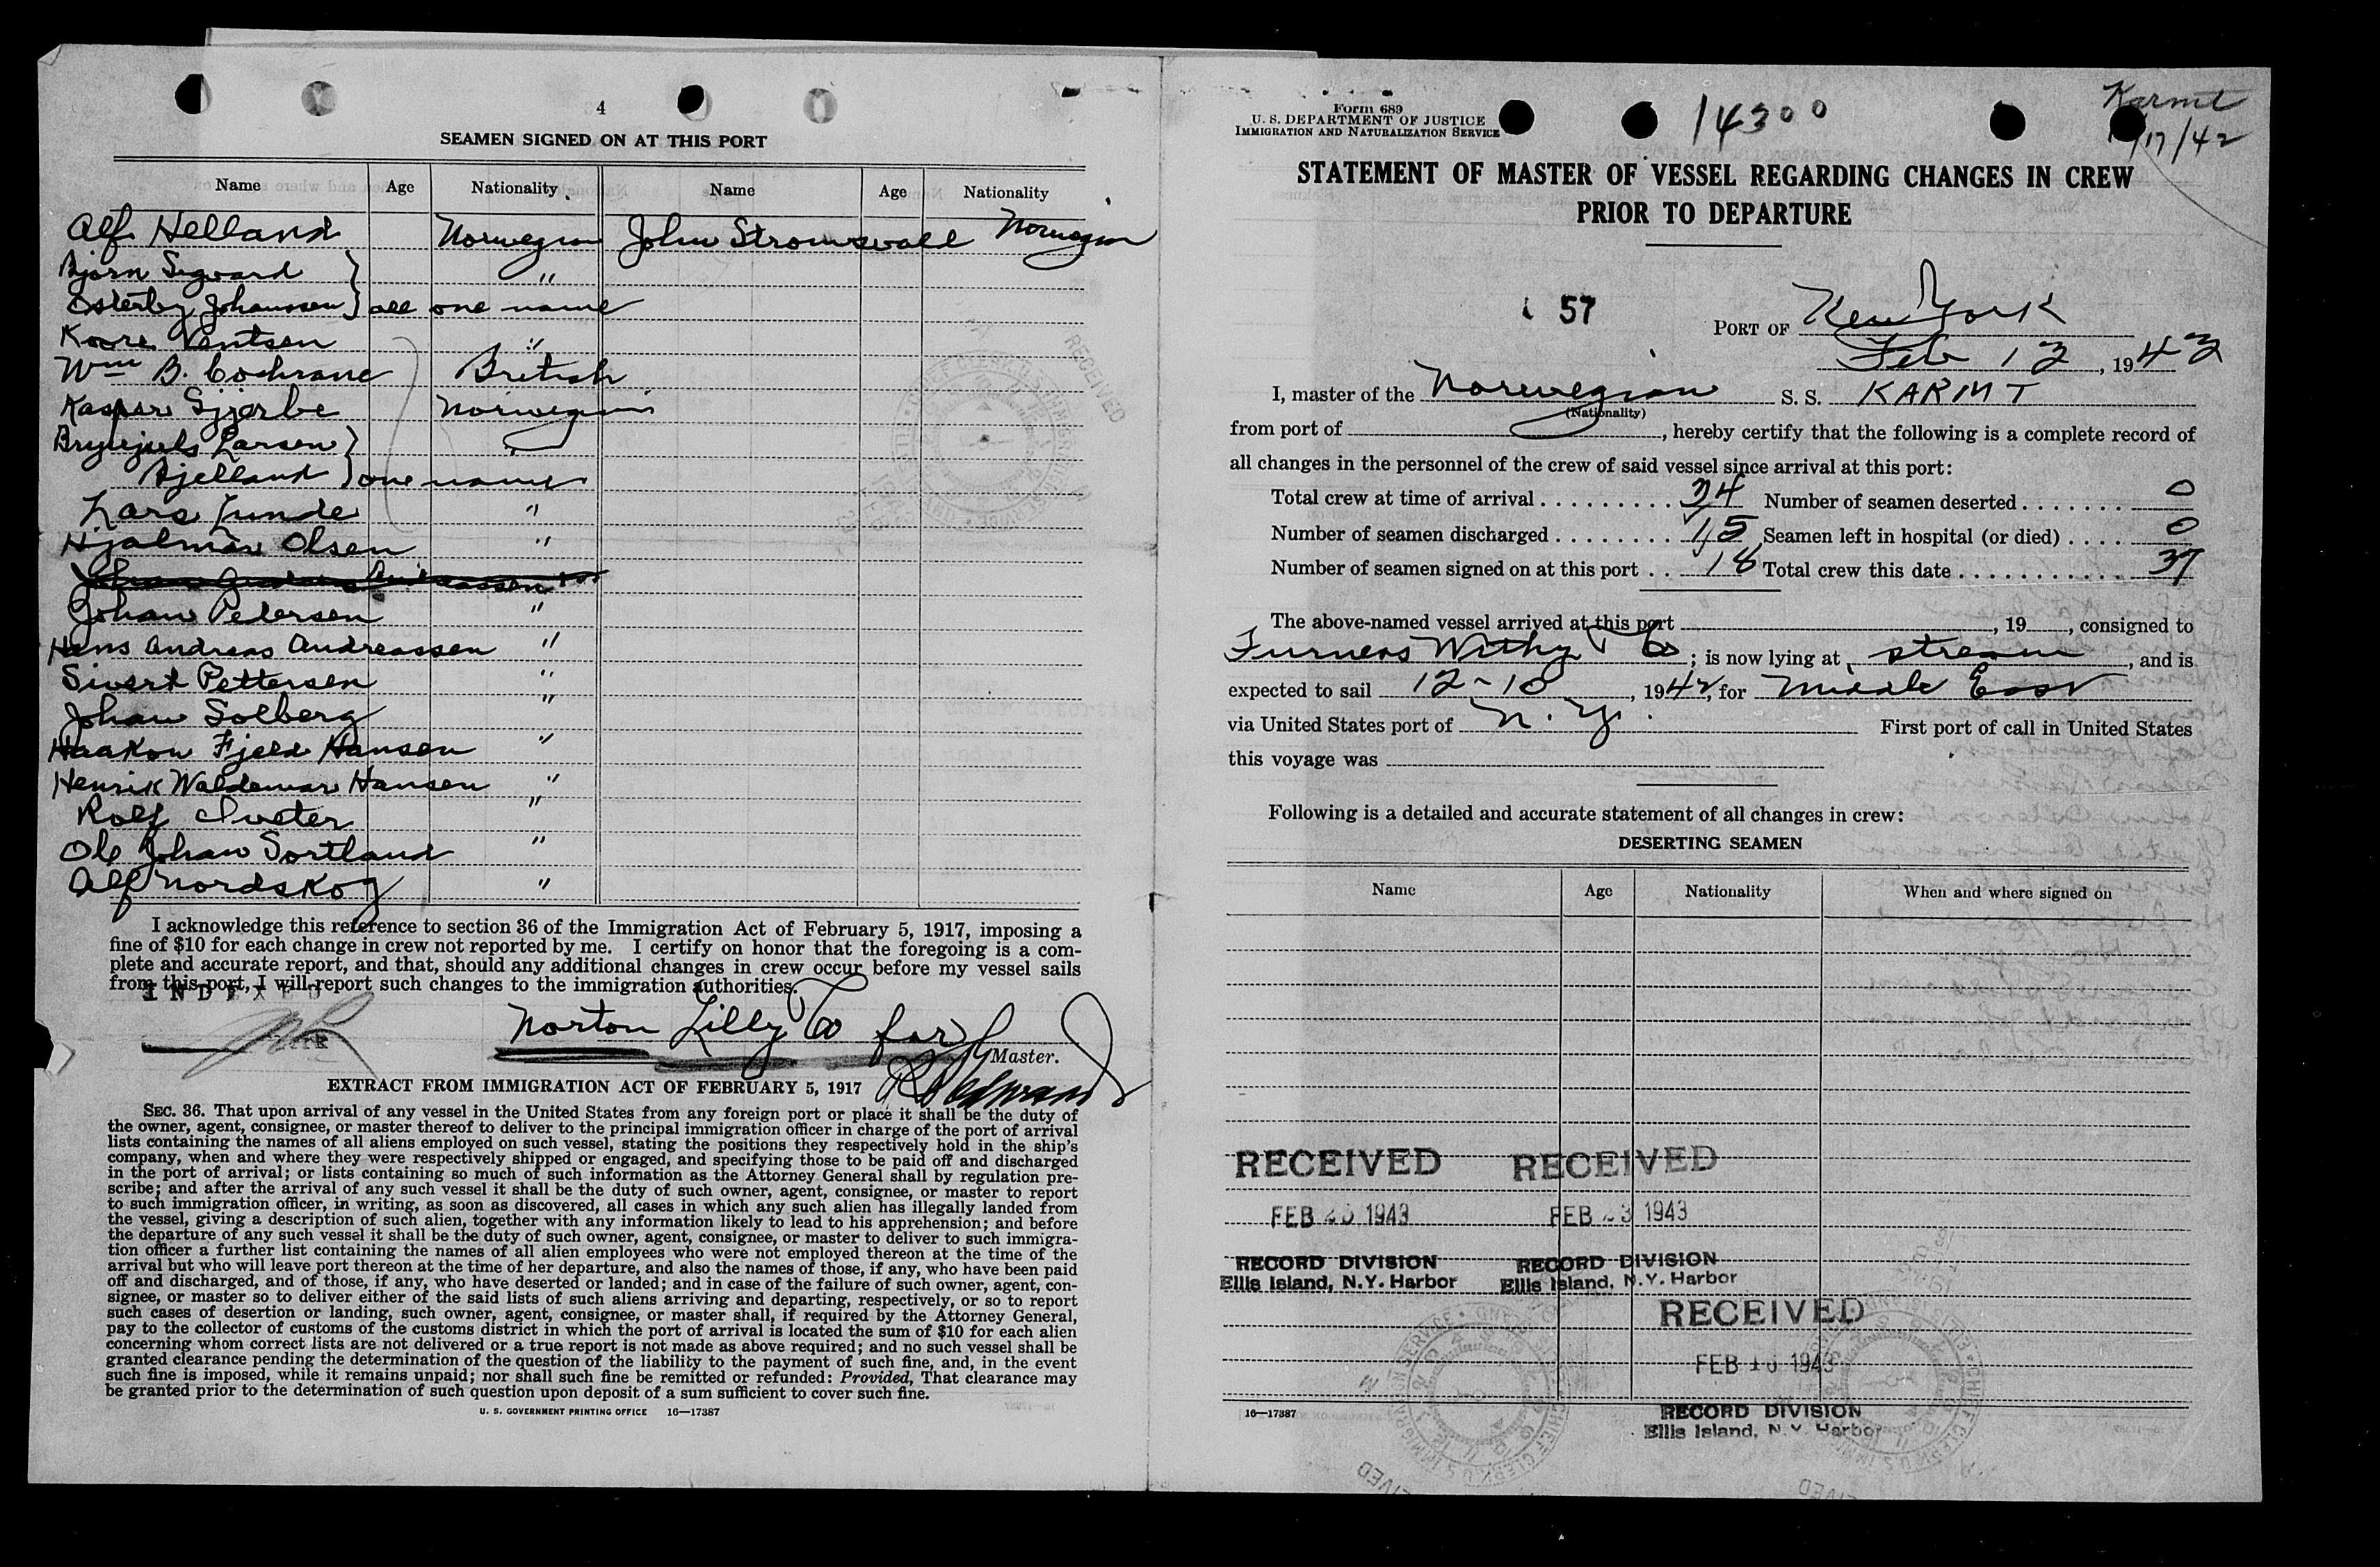 4
SEAMEN SIGNED ON AT THIS PORT
Name Age Nationality Name Age Nationality
Alf Helland Norwegian John Stromsvall Norwegian
Bjorn Sigvard } "
Osterby Johanssen } all one name
Koore Ventsen "
Wm B. Cochrane British
Kaspar Norwegian
Larsen } "
Bjelland } one name
Lars Lunde "
Hjalmar Olsen "
Johan Petersen "
Hans Andreas Andreassen "
Sivert Pettersen "
Johan Solberg "
Haakon Fjeld Hansen "
Henrik Waldemar Hansen "
Rolf "
Ole Johan Sortland "
Alf Nordskog "
I acknowledge this reference to section 36 of the Immigration Act of February 5, 1917, imposing a
fine of $10 for each change in crew not reported by me. I certify on honor that the foregoing is a com-
plete and accurate report, and that, should any additional changes in crew occur before my vessel sails
from this port, I will report such changes to the immigration authorities.
INDEXED
Norton Lilly Co for
Master.
EXTRACT FROM IMMIGRATION ACT OF FEBRUARY 5, 1917
SEC. 36. That upon arrival of any vessel in the United States from any foreign port or place it shall be the duty of
the owner, agent, consignee, or master thereof to deliver to the principal immigration officer in charge of the port of arrival
lists containing the names of all aliens employed on such vessel, stating the positions they respectively hold in the ship's
company, when and where they were respectively shipped or engaged, and specifying those to be paid off and discharged
in the port of arrival; or lists containing so much of such information as the Attorney General shall by regulation pre-
scribe; and after the arrival of any such vessel it shall be the duty of such owner, agent, consignee, or master to report
to such immigration officer, in writing, as soon as discovered, all cases in which any such alien has illegally landed from
the vessel, giving a description of such alien, together with any information likely to lead to his apprehension; and before
the departure of any such vessel it shall be the duty of such owner, agent, consignee, or master to deliver to such immigra-
tion officer a further list containing the names of all alien employees who were not employed thereon at the time of the
arrival but who will leave port thereon at the time of her departure, and also the names of those, if any, who have been paid
off and discharged, and of those, if any, who have deserted or landed; and in case of the failure of such owner, agent, con-
signee, or master so to deliver either of the said lists of such aliens arriving and departing, respectively, or so to report
such cases of desertion or landing, such owner, agent, consignee, or master shall, if required by the Attorney General,
pay to the collector of customs of the customs district in which the port of arrival is located the sum of $10 for each alien
concerning whom correct lists are not delivered or a true report is not made as above required; and no such vessel shall be
granted clearance pending the determination of the question of the liability to the payment of such fine, and, in the event
such fine is imposed, while it remains unpaid; nor shall such fine be remitted or refunded: Provided, That clearance may
be granted prior to the determination of such question upon deposit of a sum sufficient to cover such fine.
U. S. GOVERNMENT PRINTING OFFICE 16—17387
Form 689
U. S. DEPARTMENT OF JUSTICE
IMMIGRATION AND NATURALIZATION SERVICE
14300
Karmt
17/42
STATEMENT OF MASTER OF VESSEL REGARDING CHANGES IN CREW
PRIOR TO DEPARTURE
57
PORT OF New York
Feb 13, 1943
I, master of the Norwegian S. S. KARMT
(Nationality)
from port of , hereby certify that the following is a complete record of
all changes in the personnel of the crew of said vessel since arrival at this port:
Total crew at time of arrival 34 Number of seamen deserted 0
Number of seamen discharged 15 Seamen left in hospital (or died) 0
Number of seamen signed on at this port 18 Total crew this date 37
The above-named vessel arrived at this port , 19 , consigned to
Furness Withy & Co ; is now lying at stream , and is
expected to sail 12-10 , 1942, for Middle East
via United States port of N.Y. First port of call in United States
this voyage was
Following is a detailed and accurate statement of all changes in crew:
DESERTING SEAMEN
Name Age Nationality When and where signed on
RECEIVED RECEIVED
FEB 1943 FEB 23 1943
RECORD DIVISION RECORD DIVISION
Ellis Island, N.Y. Harbor Ellis Island, N.Y. Harbor
RECEIVED
FEB 1943
RECORD DIVISION
Ellis Island, N.Y. Harbor
16—17387